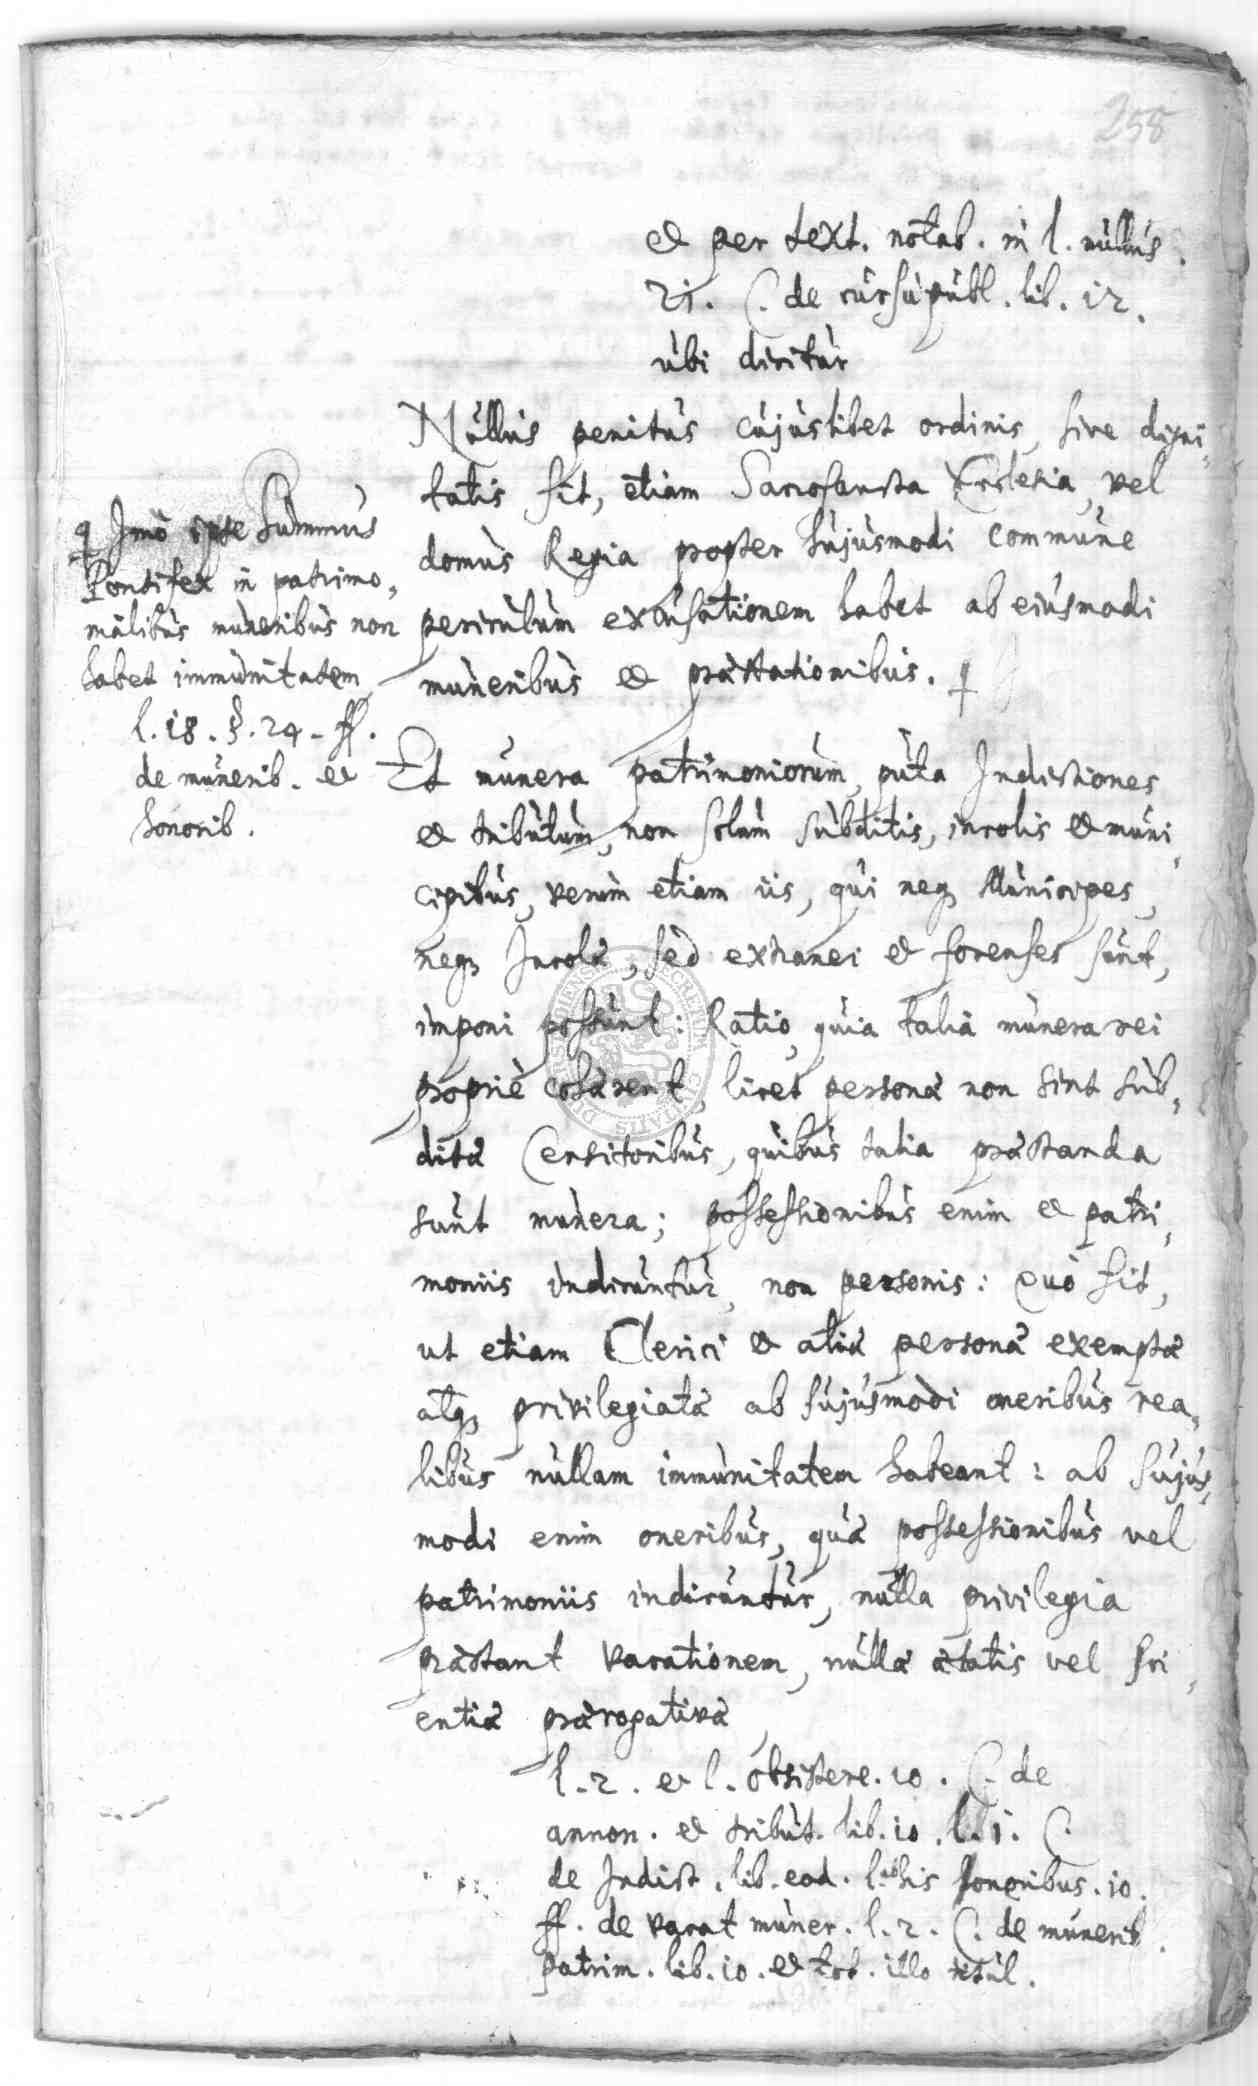 258
et per text. notab. in l. nullus.
21. C. de cursu publ. lib. 12.
ubi dicitur
Nullus penitus cujuslibet ordinis, sive digni,
tatis sit, etiam Sacrosancta Ecclesia, vel
domus Regia propter hujusmodi commune
periculum excusationem habet ab eiusmodi
muneribus et præstationibus. ꝗ
ꝗ Imò ipse Summus
Pontifex in patrimo,
nialibus muneribus non
habet immunitatem
l. 18. §. 24. ff.
de munerib. et
honorib.
Et munera patrimoniorum, puta Indictiones
et tributum, non solum subditis, incolis et muni,
cipibus, verum etiam iis, qui neq, Municipes,
neq, Incolæ, sed extranei et forenses sunt,
imponi possunt: Ratio, quia talia munera rei
propriè cohærent, licet personæ non sint sub,
ditæ Censitoribus, quibus talia præstanda
sunt munera; possessionibus enim et patri,
moniis indicuntur, non personis: Quò fit,
ut etiam Clerici et aliæ personæ exemptæ
atq, privilegiatæ ab hujusmodi oneribus rea,
libus nullam immunitatem habeant: ab hujus,
modi enim oneribus, quæ possessionibus vel
patrimoniis indicuntur, nulla privilegia
præstant vacationem, nullæ ætatis vel sci,
entiæ prærogativæ,
l. 2. et l. obsistere. 10. C. de
annon. et tribut. lib. 10. l. 1. C.
de Indict. lib. eod. l. ab his honoribus. 10.
ff. de vacat muner. l. 2. C. de munerib.
patrim. lib. 10. et tot. illo titul.